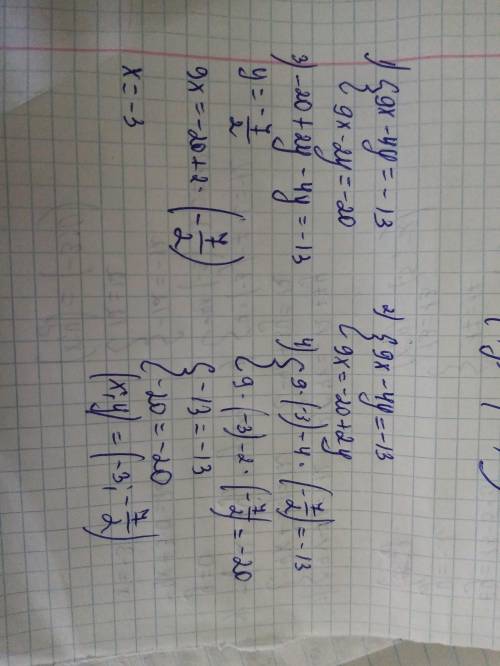 1) { 9x - 4y = -13
{ 9x - 2y = -20
2) { 9x - 4y = -13
{ 9x = -20 + 2y
3) -20 + 2y - 4y = -13
y = -7/2
9x = -20 + 2 · (-7/2)
x = -3
4) { 9 · (-3) - 4 · (-7/2) = -13
{ 9 · (-3) - 2 · (-7/2) = -20
{ -13 = -13
{ -20 = -20
(x, y) = (-3, -7/2)